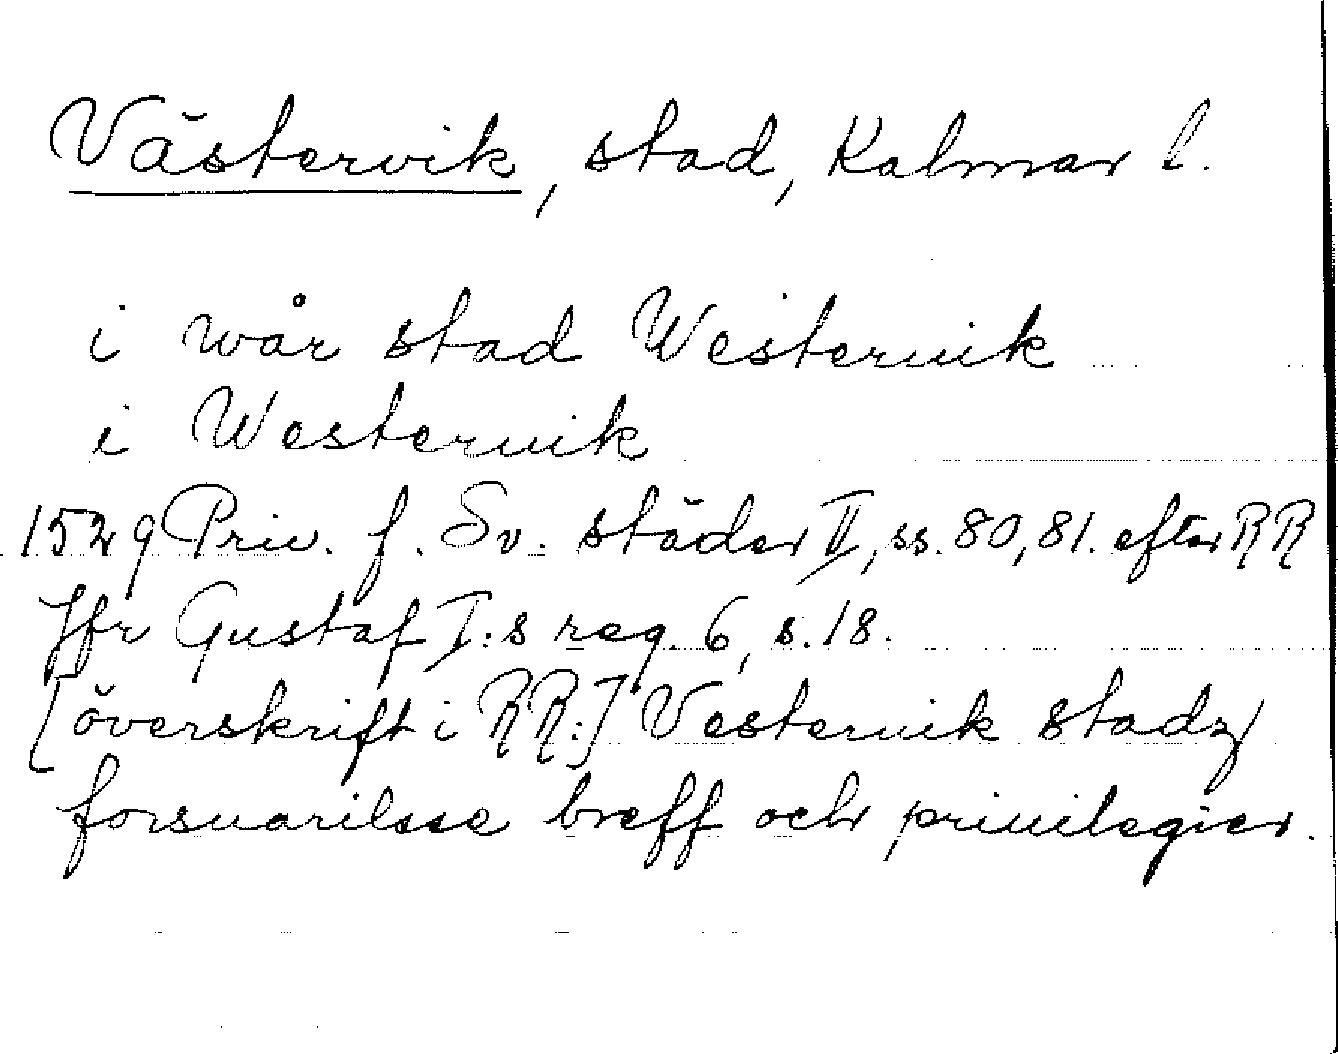 Västervik, stad, Kalmar l.
i wår stad Westeruik
i Westeruik
1529 Priv. f. Sv. städer II, ss. 80, 81. efter RR
Jfr Gustaf I:s reg. 6, s. 18.
[överskrift i RR:] Vesteruik stadz
forsuarilsse breff och priuilegier.